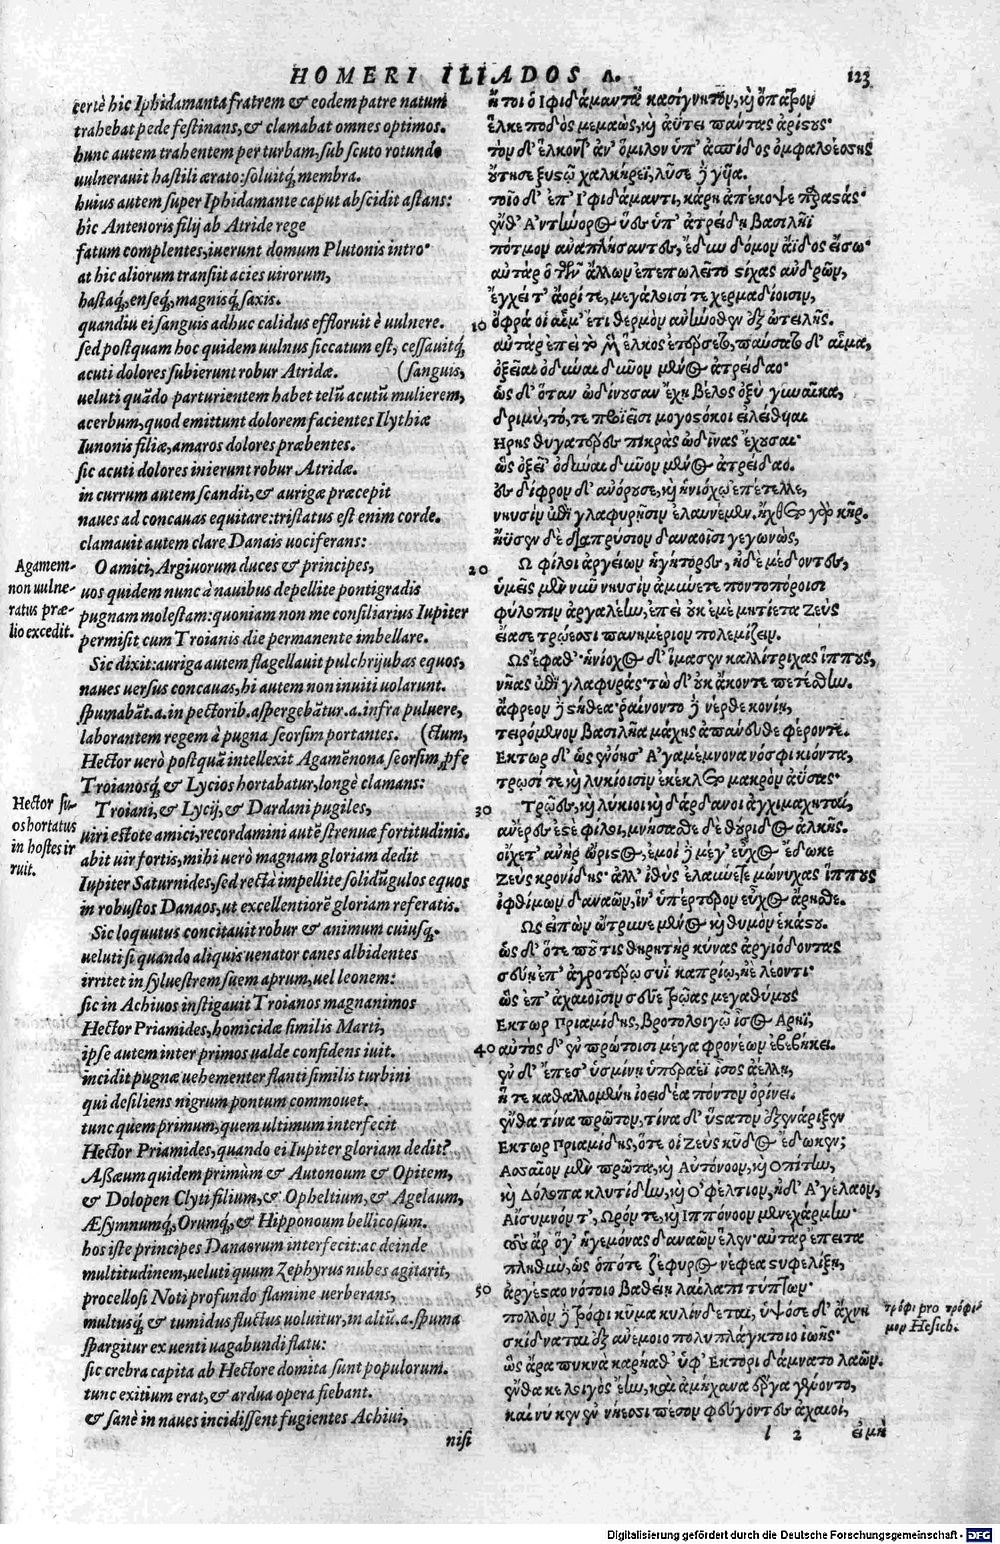 HOMERI ILIADOS Λ. 123
certè hic Iphidamanta fratrem & eodem patre natum
trahebat pede festinans, & clamabat omnes optimos.
hunc autem trahentem per turbam, sub scuto rotundo
uulnerauit hastili ærato: soluitq; membra.
huius autem super Iphidamante caput abscidit astans:
hîc Antenoris filij ab Atride rege
fatum complentes, iuerunt domum Plutonis intro·
at hic aliorum transiit acies uirorum,
hastaq;, enseq;, magnisq; saxis.
quandiu ei sanguis adhuc calidus effloruit è uulnere.
sed postquam hoc quidem uulnus siccatum est, cessauitq;
acuti dolores subierunt robur Atridæ. (sanguis,
ueluti quādo parturientem habet telū acutū mulierem,
acerbum, quod emittunt dolorem facientes Ilythiæ
Iunonis filiæ, amaros dolores præbentes.
sic acuti dolores inierunt robur Atridæ.
in currum autem scandit, & aurigæ præcepit
naues ad concauas equitare: tristatus est enim corde.
clamauit autem clare Danais uociferans:
O amici, Argiuorum duces & principes,
uos quidem nunc à nauibus depellite pontigradis
pugnam molestam: quoniam non me consiliarius Iupiter
permisit cum Troianis die permanente imbellare.
Sic dixit: auriga autem flagellauit pulchrijubas equos,
naues uersus concauas, hi autem non inuiti uolarunt.
spumabāt .a. in pectorib. aspergebātur .a. infra puluere,
laborantem regem à pugna seorsim portantes. (ctum,
Hector uerò postquā intellexit Agamēnona seorsim ꝓfe
Troianosq; & Lycios hortabatur, longè clamans:
Troiani, & Lycij, & Dardani pugiles,
uiri estote amici, recordamini autē strenuæ fortitudinis.
abit uir fortis, mihi uerò magnam gloriam dedit
Iupiter Saturnides, sed rectà impellite solidūgulos equos
in robustos Danaos, ut excellentiorē gloriam referatis.
Sic loquutus concitauit robur & animum cuiusq;.
ueluti si quando aliquis uenator canes albidentes
irritet in syluestrem suem aprum, uel leonem:
sic in Achiuos instigauit Troianos magnanimos
Hector Priamides, homicidæ similis Marti,
ipse autem inter primos ualde confidens iuit.
incidit pugnæ uehementer flanti similis turbini
qui desiliens nigrum pontum commouet.
tunc quem primum, quem ultimum interfecit
Hector Priamides, quando ei Iupiter gloriam dedit?
Assæum quidem primùm & Autonoum & Opitem,
& Dolopen Clyti filium, & Opheltium, & Agelaum,
Æsymnumq;, Orumq;, & Hipponoum bellicosum.
hos iste principes Danaorum interfecit: ac deinde
multitudinem, ueluti quum Zephyrus nubes agitarit,
procellosi Noti profundo flamine uerberans,
multusq; & tumidus fluctus uoluitur, in altū .a. spuma
spargitur ex uenti uagabundi flatu:
sic crebra capita ab Hectore domita sunt populorum.
tunc exitium erat, & ardua opera fiebant.
& sanè in naues incidissent fugientes Achiui,
nisi
Agamem-
non uulne-
ratus præ-
lio excedit.
Hector su-
os hortatus
in hostes ir
ruit.
ἤτοι ὁ Ιφιδάμαντα κασίγνητον, καὶ ὄπατρον
ἕλκε ποδὸς μεμαὼς, καὶ ἀΰτει πάντας ἀρίστους·
τὸν δ' ἕλκοντ' ἀν' ὅμιλον ὑπ' ἀσπίδος ὀμφαλοέσσης
οὔτησε ξυστῷ χαλκήρεϊ, λῦσε δὲ γυῖα.
τοῖο δ' ἐπ' Ιφιδάμαντι, κάρη ἀπέκοψε παραστάς·
ἔνθ' Αντήνορος υἷες ὑπ' ἀτρείδῃ βασιλῆϊ
πότμον ἀναπλήσαντες, ἔδυν δόμον ἄϊδος εἴσω·
αὐτὰρ ὁ τῶν ἄλλων ἐπεπωλεῖτο στίχας ἀνδρῶν,
ἔγχεί τ' ἄορί τε, μεγάλοισί τε χερμαδίοισιν,
10 ὄφρά οἱ αἷμ' ἔτι θερμὸν ἀνήνοθεν ἐξ ὠτειλῆς.
αὐτὰρ ἐπεὶ τὸ μὲν ἕλκος ἐτέρσετο, παύσατο δ' αἷμα,
ὀξεῖαι ὀδύναι δῦνον μένος ἀτρείδαο·
ὡς δ' ὅταν ὠδίνουσαν ἔχῃ βέλος ὀξὺ γυναῖκα,
δριμὺ, τό, τε προϊεῖσι μογοστόκοι εἰλείθυιαι
Ηρης θυγατέρες πικρὰς ὠδῖνας ἔχουσαι·
ὣς ὀξεῖ' ὀδύναι δῦνον μένος ἀτρείδαο.
ἐς δίφρον δ' ἀνόρουσε, καὶ ἡνιόχῳ ἐπέτελλε,
νηυσὶν ἐπὶ γλαφυρῇσιν ἐλαυνέμεν. ἤχθετο γὰρ κῆρ.
ἤϋσεν δὲ διαπρύσιον δαναοῖσι γεγωνὼς,
20 Ω φίλοι ἀργείων ἡγήτορες, ἠδὲ μέδοντες,
ὑμεῖς μὲν νῦν νηυσὶν ἀμύνετε ποντοπόροισι
φύλοπιν ἀργαλέην, ἐπεὶ οὐκ ἐμὲ μητίετα Ζεὺς
εἴασε τρώεσσι πανημέριον πολεμίζειν.
Ως ἔφαθ'· ἡνίοχος δ' ἵμασεν καλλίτριχας ἵππους,
νῆας ἐπὶ γλαφυράς· τὼ δ' οὐκ ἄκοντε πετέσθην.
ἄφρεον δὲ στήθεα· ῥαίνοντο δὲ νέρθε κονίῃ,
τειρόμενον βασιλῆα μάχης ἀπάνευθε φέροντε.
Εκτωρ δ' ὡς ἐνόησ' Αγαμέμνονα νόσφι κιόντα,
τρωσί τε καὶ λυκίοισιν ἐκέκλετο μακρὸν ἀΰσας·
30 Τρῶες, καὶ λύκιοι καὶ δάρδανοι ἀγχιμαχηταί,
ἀνέρες ἐστὲ φίλοι, μνήσασθε δὲ θούριδος ἀλκῆς.
οἴχετ' ἀνὴρ ὤριστος, ἐμοὶ δὲ μέγ' εὖχος ἔδωκε
Ζεὺς κρονίδης· ἀλλ' ἰθὺς ἐλαύνετε μώνυχας ἵππους
ἰφθίμων δαναῶν, ἵν' ὑπέρτερον εὖχος ἄρησθε.
Ως εἰπὼν ὤτρυνε μένος καὶ θυμὸν ἑκάστου.
ὡς δ' ὅτε πού τις θηρητὴρ κύνας ἀργιόδοντας
σεύῃ ἐπ' ἀγροτέρῳ συῒ καπρίῳ, ἠὲ λέοντι·
ὣς ἐπ' ἀχαιοῖσιν σεῦε τρῶας μεγαθύμους
Εκτωρ Πριαμίδης, βροτολοιγῷ ἶσος Αρηϊ,
40 αὐτὸς δ' ἐν πρώτοισι μέγα φρονέων ἐβεβήκει.
ἐν δ' ἔπεσ' ὑσμίνῃ ὑπεραέϊ ἶσος ἀέλλῃ,
ἥ τε καθαλλομένη ἰοειδέα πόντον ὀρίνει.
ἔνθα τίνα πρῶτον, τίνα δ' ὕστατον ἐξενάριξεν
Εκτωρ Πριαμίδης, ὅτε οἱ Ζεὺς κῦδος ἔδωκεν;
Ασσαῖον μὲν πρῶτα, καὶ Αὐτόνοον, καὶ Οπίτην,
καὶ Δόλοπα κλυτίδην, καὶ Οφέλτιον, ἠδ' Αγέλαον,
Αἴσυμνόν τ', Ωρόν τε, καὶ Ιππόνοον μενεχάρμην·
τοὺς ἄρ' ὅγ' ἡγεμόνας δαναῶν ἕλεν· αὐτὰρ ἔπειτα
πληθὺν, ὡς ὁπότε ζέφυρος νέφεα στυφελίξῃ,
50 ἀργεστᾶο νότοιο βαθείῃ λαίλαπι τύπτων·
πολλὸν δὲ τρόφι κῦμα κυλίνδεται, ὑψόσε δ' ἄχνη
σκίδναται ἐξ ἀνέμοιο πολυπλάγκτοιο ἰωῆς·
ὣς ἄρα πυκνὰ καρήαθ' ὑφ' Εκτορι δάμνατο λαῶν.
ἔνθα κε λοιγὸς ἔην, καὶ ἀμήχανα ἔργα γένοντο,
καί νύ κεν ἐν νήεσσι πέσον φεύγοντες ἀχαιοί,
l 2 εἰ μὴ
τρόφι pro τρόφι-
μον Hesich.
Digitalisierung gefördert durch die Deutsche Forschungsgemeinschaft - DFG